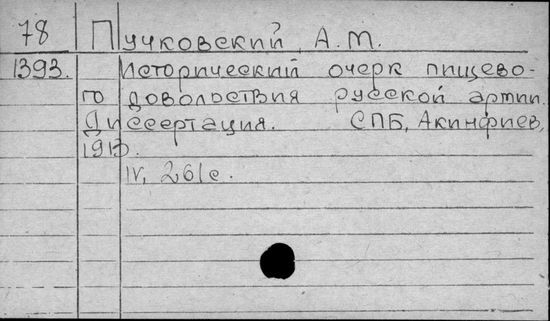 78 Пучковский, А.М.
1393. Исторический очерк пищево-
го довольствия русской армии.
Диссертация. СПБ, Акинфиев,
1913.
IV, 261с.